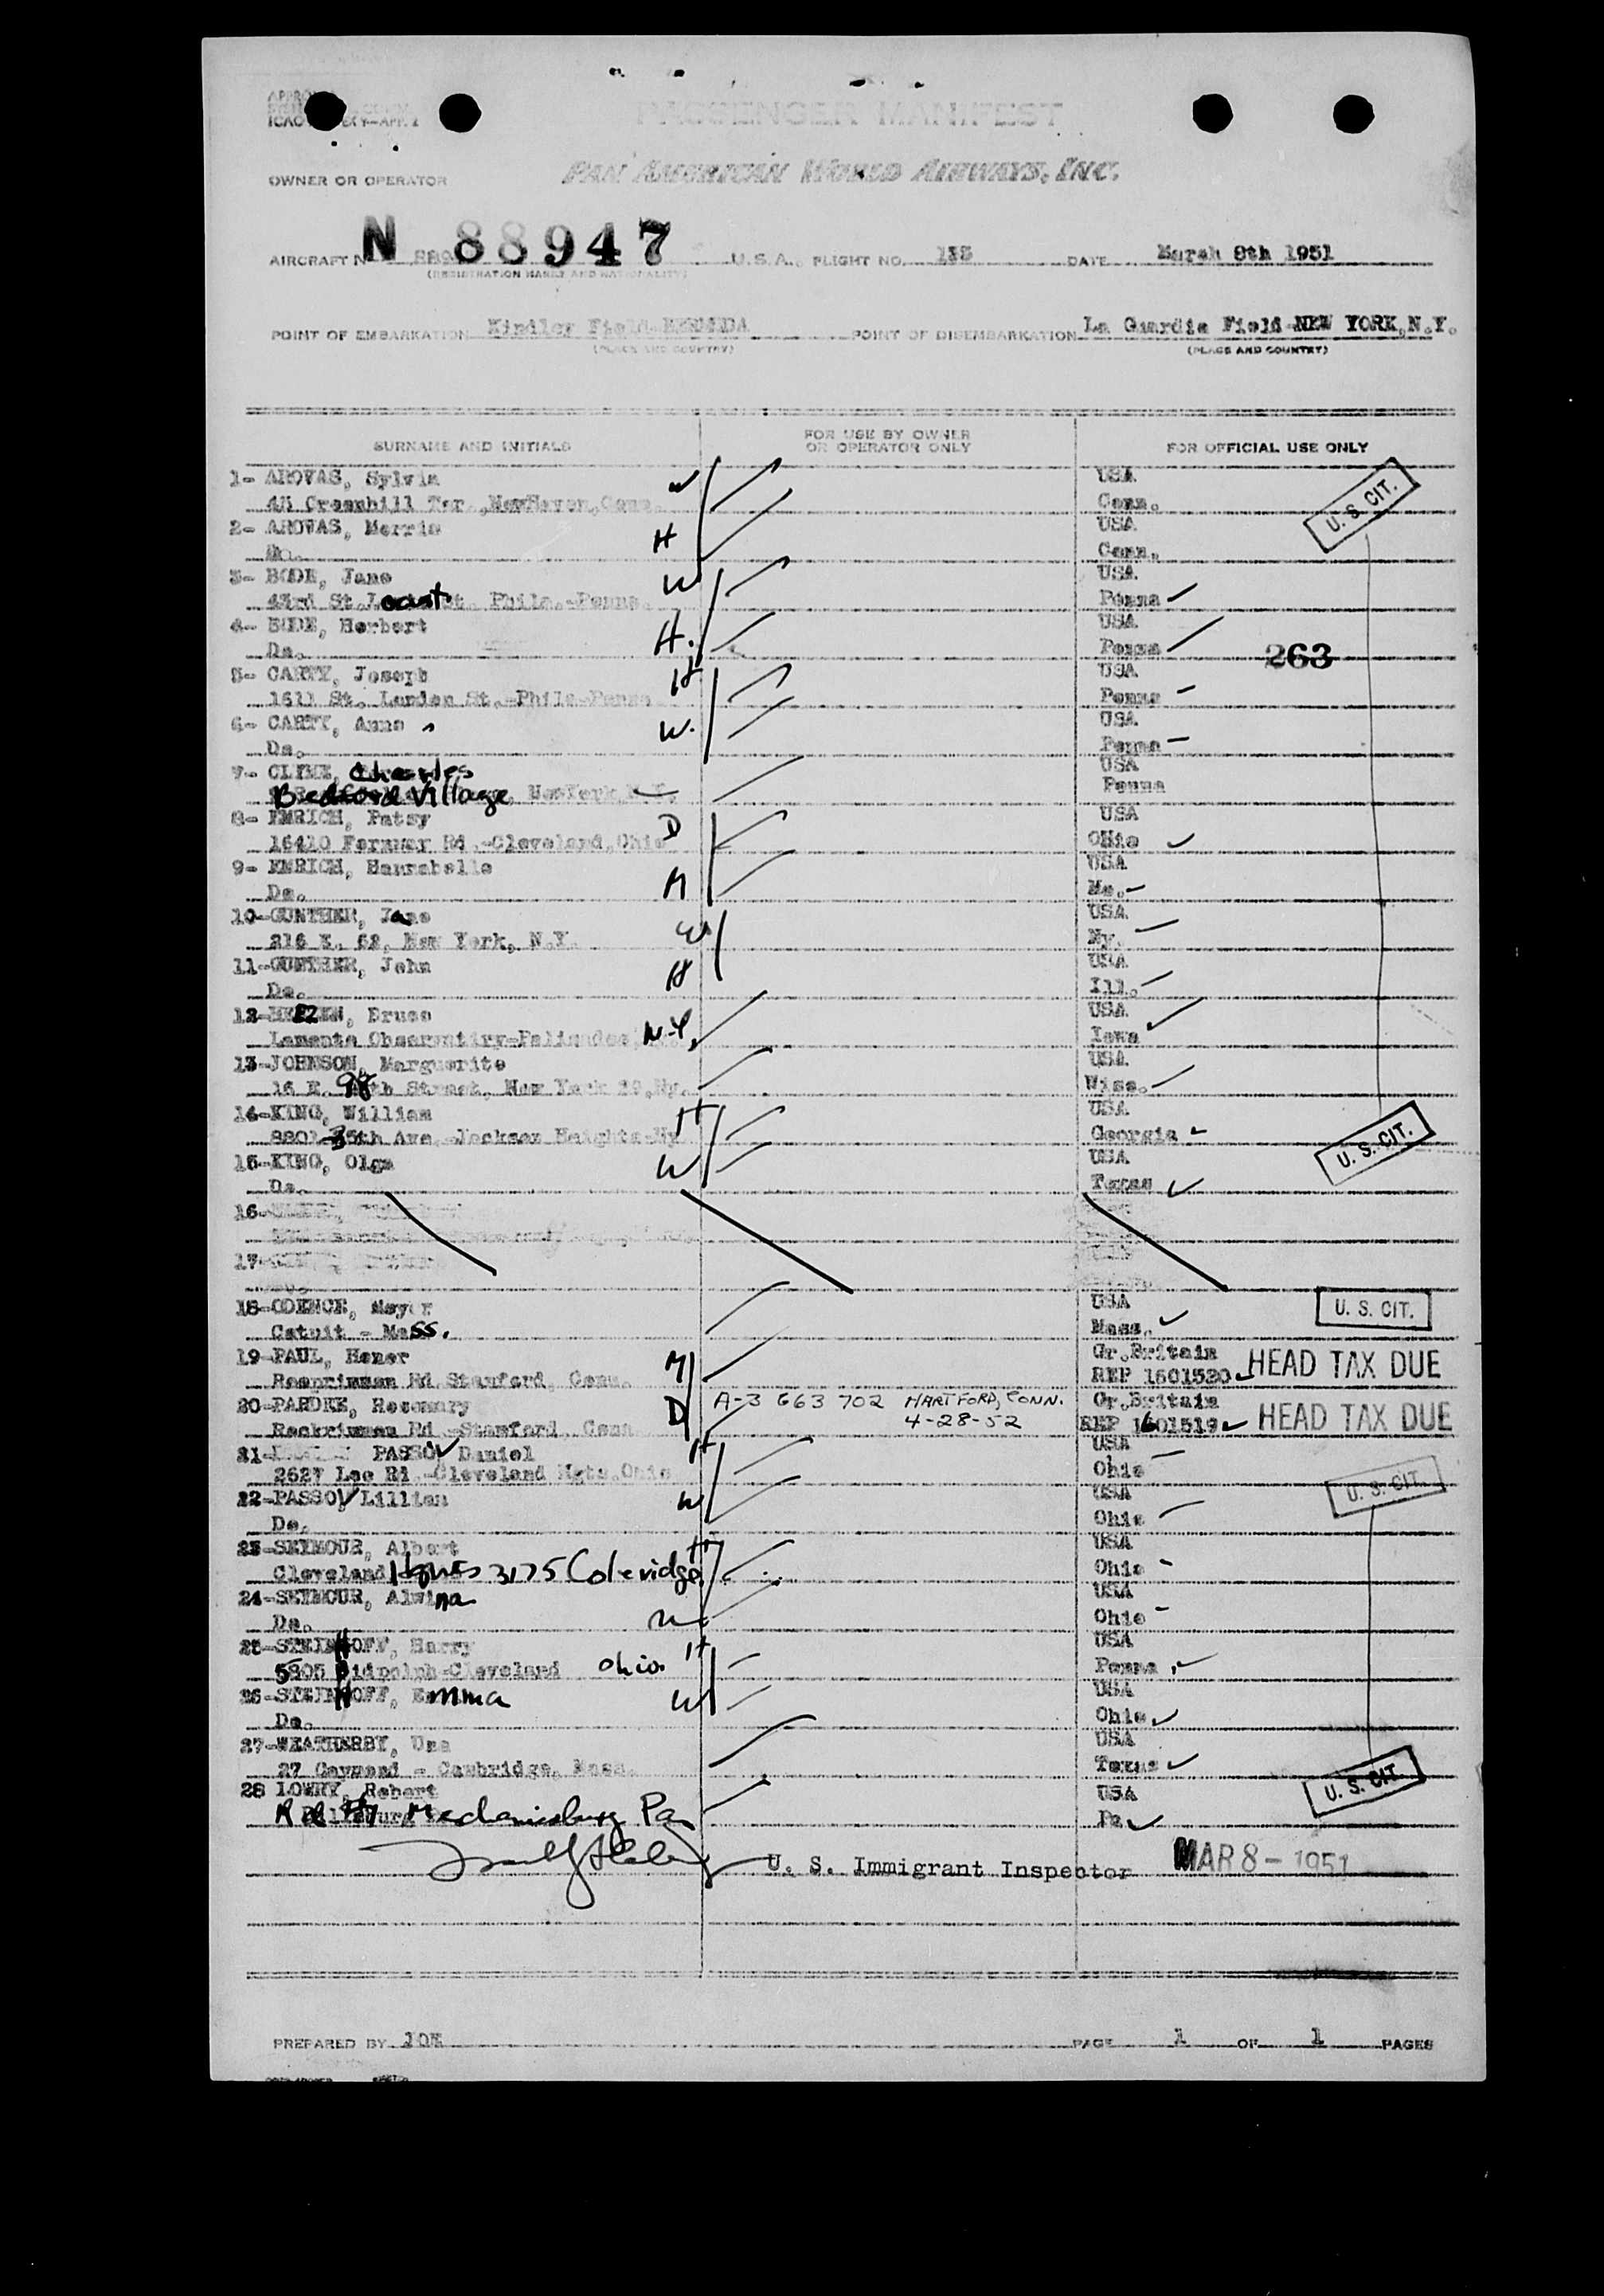 PASSENGER MANIFEST
OWNER OR OPERATOR PAN AMERICAN WORLD AIRWAYS, INC.
AIRCRAFT N 88947 U.S.A. FLIGHT NO. DATE March 8th 1951
(REGISTRATION MARKS AND NATIONALITY)
POINT OF EMBARKATION Kindley Field-BERMUDA POINT OF DISEMBARKATION La Guardia Field-NEW YORK, N.Y.
(PLACE AND COUNTRY) (PLACE AND COUNTRY)
SURNAME AND INITIALS FOR USE BY OWNER OR OPERATOR ONLY FOR OFFICIAL USE ONLY
1- AROVAS, Sylvia W USA
45 Greenhill Ter.,NewHaven,Conn. Conn. U. S. CIT.
2- AROVAS, Morris H USA
Do. Conn.
3- BODE, Jane W USA
43rd St. Locust St. Phila.-Penna. Penna
4- BODE, Herbert H. USA
Do. Penna 263
5- CARTY, Joseph H USA
1611 St. Lunden St.-Phila-Penna Penna
6- CARTY, Anna W. USA
Do. Penna
7- Charles USA
Bedford Village NewYork,N.Y. Penna
8- EMRICH, Patsy D USA
16410 Fernway Rd.-Cleveland,Ohio Ohio
9- EMRICH, Hannabelle M USA
Do. Mo.
10-GUNTHER, Jane W USA
216 E. 62, New York, N.Y. Ny.
11-GUNTHER, John H USA
Do. Ill.
12- Bruce USA
Lamonta Observatiry-Palisades, N.Y. Iowa
13-JOHNSON, Marguerite USA
16 E. 98th Street, New York 29,Ny. Wiss.
14-KING, William H USA
8801-35th Ave. Jackson Heights-Ny Georgia
15-KING, Olga W USA U. S. CIT.
Do. Texas
16-
17-
18-ODENCE, Meyer USA U. S. CIT.
Cotuit - Mass. Mass.
19-PAUL, Hener M Gr.Britain
Rd Stamford, Conn. REP 1601520 HEAD TAX DUE
20-PARDEE, Rosemary D A-3 663 702 HARTFORD, CONN. Gr.Britain
Rockrimmon Rd.-Stamford, Conn 4-28-52 REP 1601519 HEAD TAX DUE
21- PASSOV Daniel H USA
2627 Lee Rd.-Cleveland Hgts.Ohio Ohio
22-PASSOV Lillian W USA U. S. CIT.
Do. Ohio
23-SEYMOUR, Albert H USA
Cleveland 3175 Coleridge Ohio
24-SEYMOUR, Alwina W USA
Do. Ohio
25-STEINHOFF, Harry H USA
5805 Ridpolph-Cleveland Ohio. Penna
26-STEINHOFF, Emma W USA
Do. Ohio
27-WEATHERBY, Una USA
27 Cambridge, Mass. Texas
28 LOWRY, Robert USA U. S. CIT.
Mechanicsburg Pa Pa
U. S. Immigrant Inspector MAR 8 - 1951
PREPARED BY PAGE 1 OF 1 PAGES